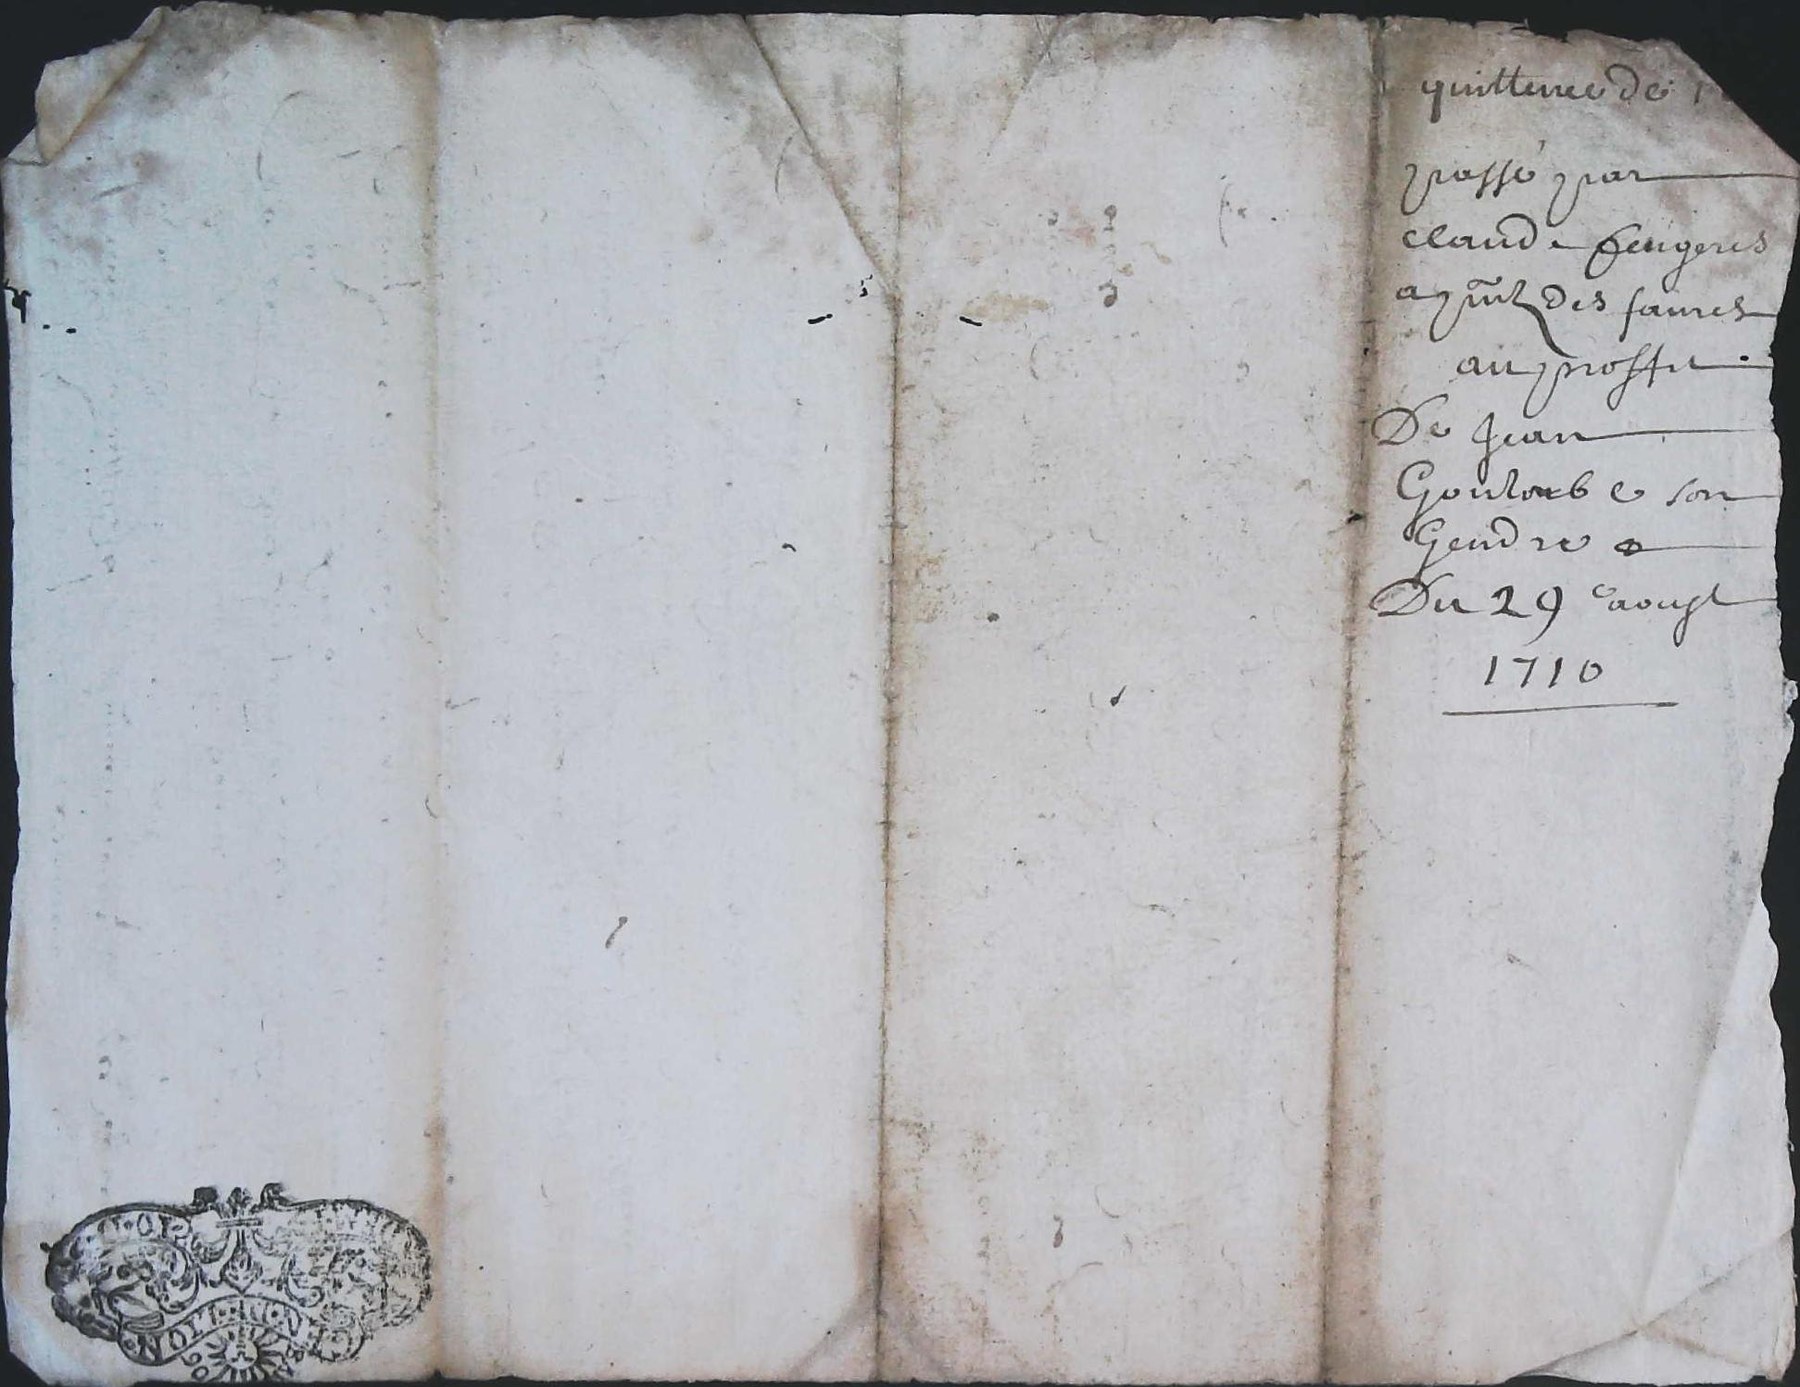 quittence de
passé par
claude feugeres
des faures
au proffit
De Jean
Goutorbe son
Gendre
Du 29e aougt
1710
NOTI